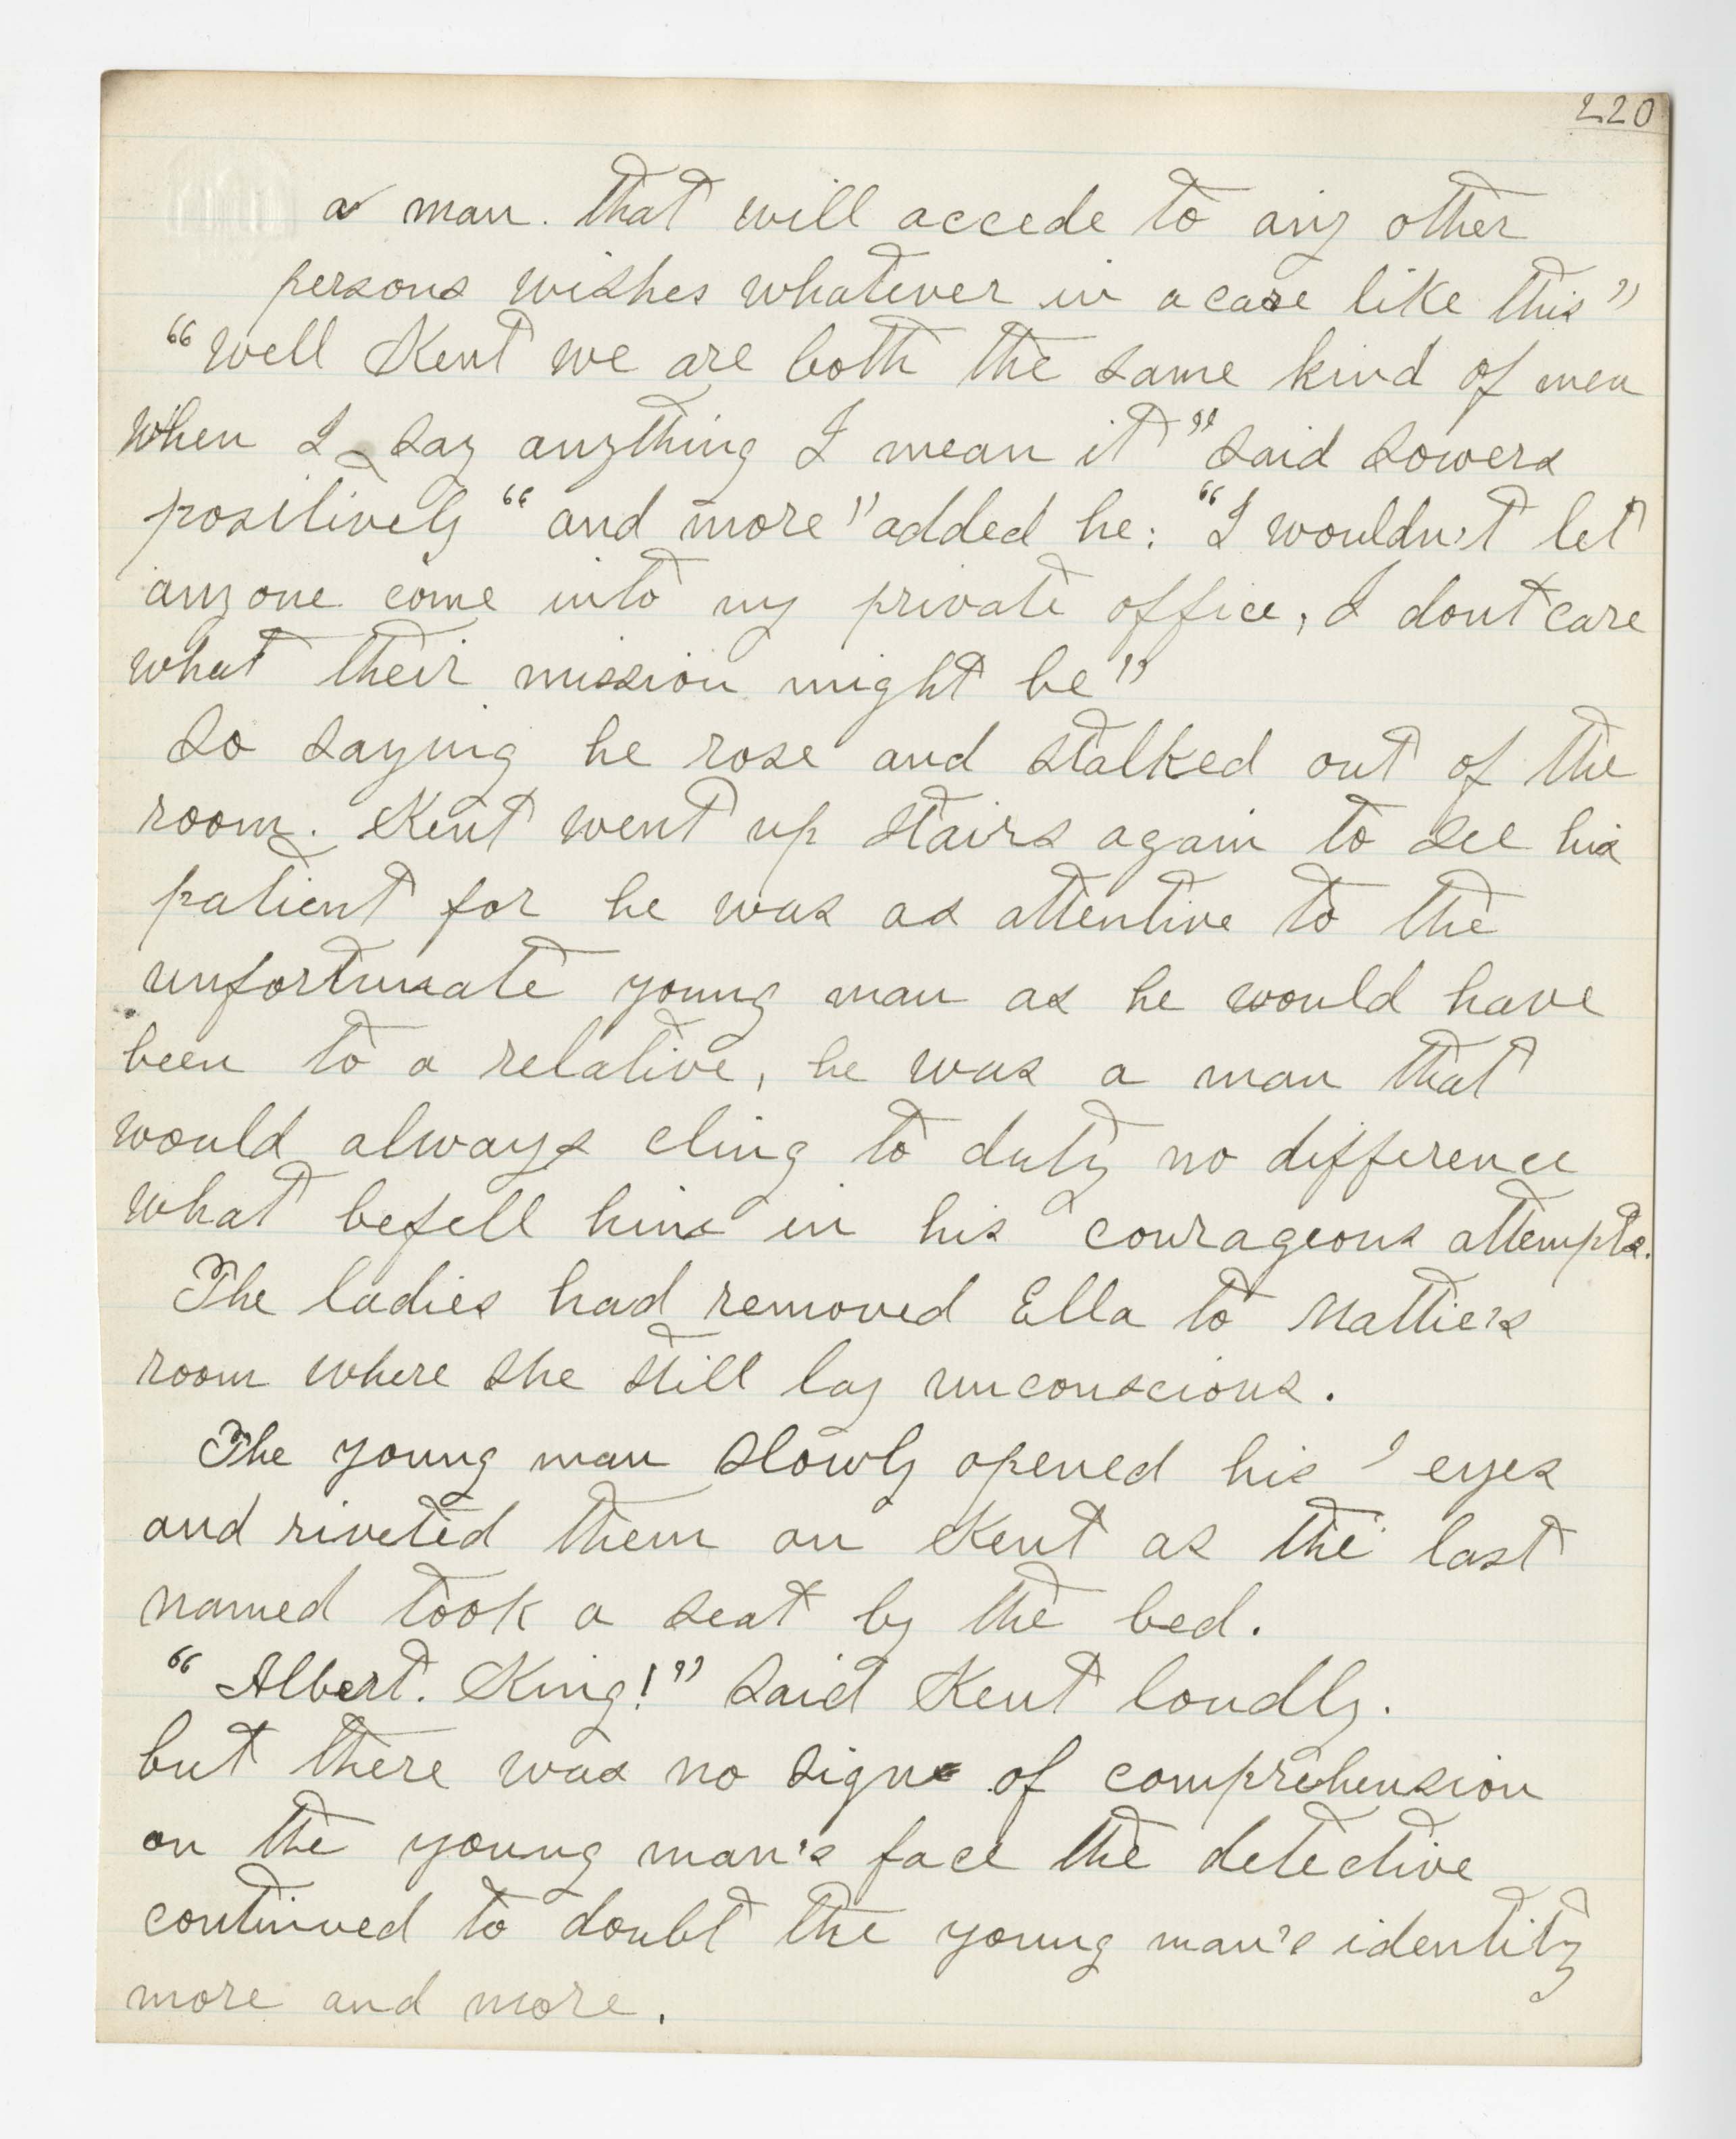 220
a man. that will accede to any other
persons wishes whatever in a case like this"
"well Kent we are both the same kind of men
when I say anything I mean it" said Sowers
positively "and more" added he: "I wouldn't let
anyone come into my private office, I dont care
what their mission might be"
So saying he rose and stalked out of the
room. Kent went up stairs again to see his
patient for he was as attentive to the
unfortunate young man as he would have
been to a relative, he was a man that
would always cling to duty no difference
what befell him in his courageous attempts.
The ladies had removed Ella to Mattie's
room where she still lay unconscious.
The young man slowly opened his eyes
and riveted them on Kent as the last
named took a seat by the bed.
"Albert. King!" said Kent loudly.
but there was no signs of comprehension
on the young man's face the detective
continued to doubt the young man's identity
more and more.